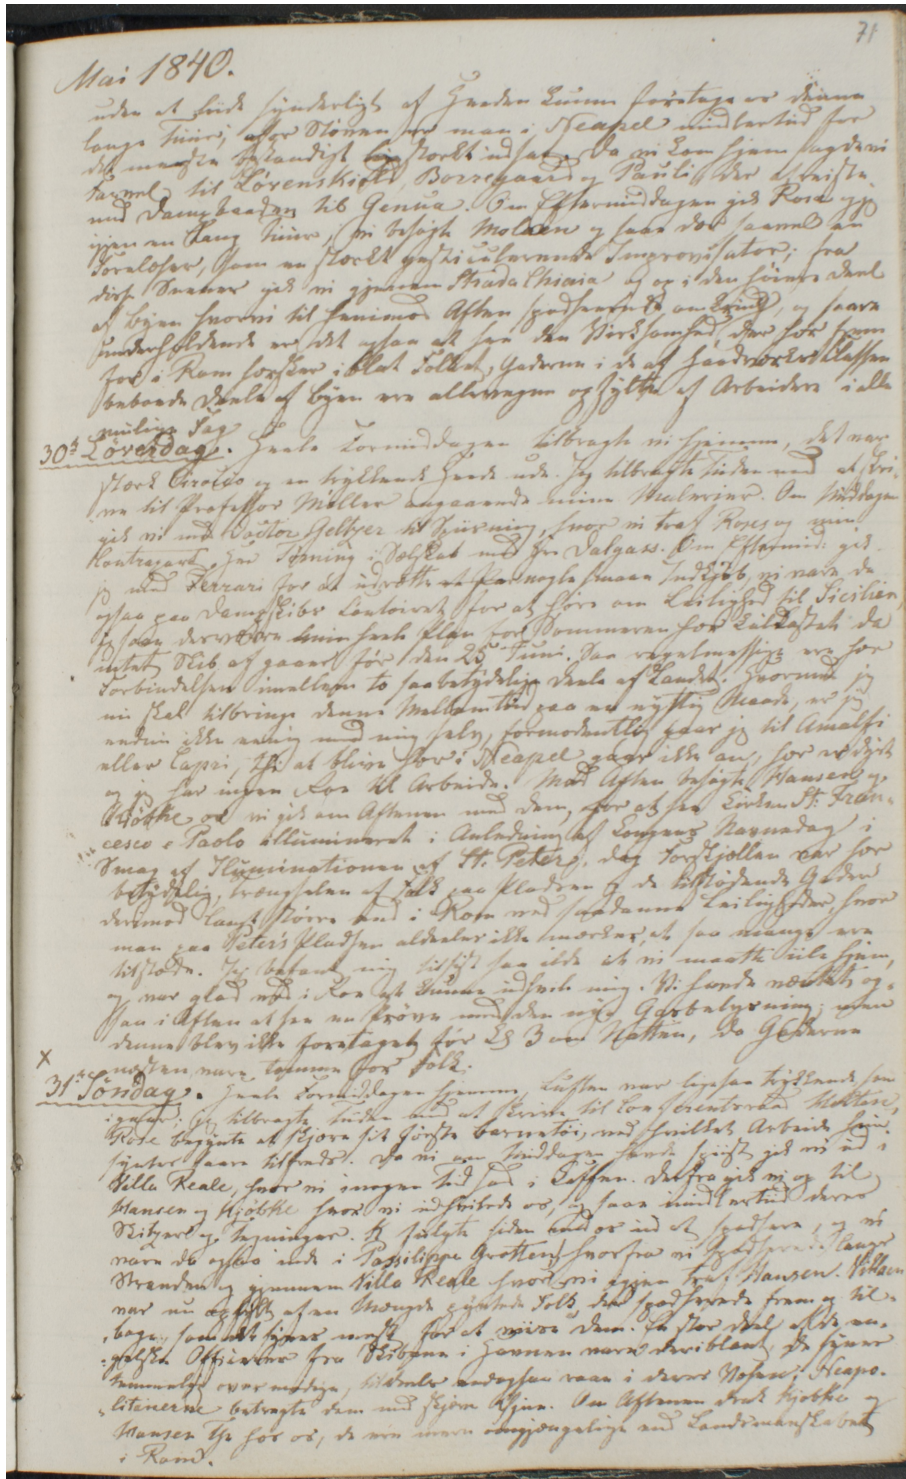 71
Mai 1840.
uden at lide synderligt af Heeden kunne foretage os denne
lange Tuur; for Støven er man i Neapel imidlertid for
det meste bestandigt udsat. Da vi kom hjem sagde vi
Farvel til Løvenskiold, Borregaard og Pauli der afreiste
med Dampbaaden til Genua. Om Eftermiddagen gik Rose og jeg
igjen en lang Tuur, vi besøgte Moloen og saae der saavel en
Forelæser, som en stærkt gesticulerende Improvisator; fra
disse Scener gik vi gjennem Strada Chiaia og op i den høiere Deel
af Byen hvor vi til henimod Aften spadserede omkring, og saare
underholdende er det ogsaa at see den Virksomhed, der her frem
for i Rom hersker iblat Folket, Gaderne i de af Haandværker Klassen
beboede Deele af Byen ere allevegne opfyldte af Arbeidere i alle
mulige Fag.
30te Løverdag. Heele Formiddagen tilbragte vi hjemme, det var
stærk Sirocco og en trykkende Heede ude. Jeg tilbragte Tiden med at skri-
ve til Professor Møller angaaende mine Malerier. Om Middagen
gik vi med Doctor Geltzer til Spiisning, hvor vi traf Roses og min
Contrapart, Hr Tøming i Selskab med Hr. Dalgass. Om Eftermid: gik
jeg med Ferrari for at udrette nogle smaae Indkjøb, vi vare da
ogsaa paa Dampskibs Contoiret for at høre om Leilighed til Sicilien,
jeg saae derved min heele Plan for Sommeren her kuldkastet da
intet Skib afgaaer før den 25 Juni. Saa regelmessige ere her
Forbindelsen imellem to saa betydelige Deele af Landet. Hvormed jeg
nu skal tilbringe denne Mellemtid paa en nyttig Maade, er jeg
endnu ikke enig med mig selv, formodentlig gaaer jeg til Amalfi
eller Capri, thi at blive her i Neapel gaaer ikke an, her er dyrt
og jeg har ingen Roe til Arbeide. Mod Aften besøgte Hansen og
Kjøbke os vi gik om Aftenen med dem, for at see Kirken St: Fran-
cesco e Paolo illumineret i Anledning af Kongens Navnedag i
Smag af Iluminationen af St: Peter, dog Forskjellen var her
betydelig, trængselen af Folk paa Pladsen og de tilstødende Gader
derimod langt større end i Rom ved saadanne Leiligheder, hvor
man paa Peters Pladsen aldeeles ikke mærker, at saa mange ere
tilstæde. Jeg befant mig tilsidst saa ilde at vi maatte iile hjem,
og var glad ved i Roe at kunne udhvile mig. Vi havde ventet og-
saa i Aften at see en Prøve med den nye Gasbelysning; men
denne blev ikke foretaget før Kl 3 om Natten, da Gaderne
næsten vare tomme for Folk.
x
31te Søndag. Heele Formiddagen hjemme, Luften var ligesaa trykkende som
igaar; jeg tilbragte Tiden med at skrive til Conferentsraad
Rose begynte at skjære sit første barnetøi, med hvilket Arbeide hun
syntes saare tilfreds. Da vi om Middagen havde spiist gik vi ud i
Villa Reale, hvor vi i nogen Tid sad i Caffeen. Derfra gik vi op til
Hansen og Kjøbke hvor vi udhvilede os, og saae imidlertid deres
Skitzer og Tegninger. K fulgte siden med os ud at spadsere, og vi
vare da ogsaa inde i Possilippo Grotten, hvorfra vi spadserede langs
Stranden og gjennem Villa Reale hvor vi igjen traf Hansen. Villaen
var nu opfyldt af en Mængde pyntede Folk, der spadserede frem og til-
bage, som det synes mest for at vise dem. En stor deel af de en-
gelske Officierer fra Skibene i Havnen vare deriblant, de synes
temmelig overmodige, tildeels endogsaa raae i deres Vesen; Neapo-
litanerne betragte dem med skjæve Øine. Om Aftenen drak Kjøbke og
Hansen The hos os, de ere mere omgjængelige end Landsmanskabet
i Rom.